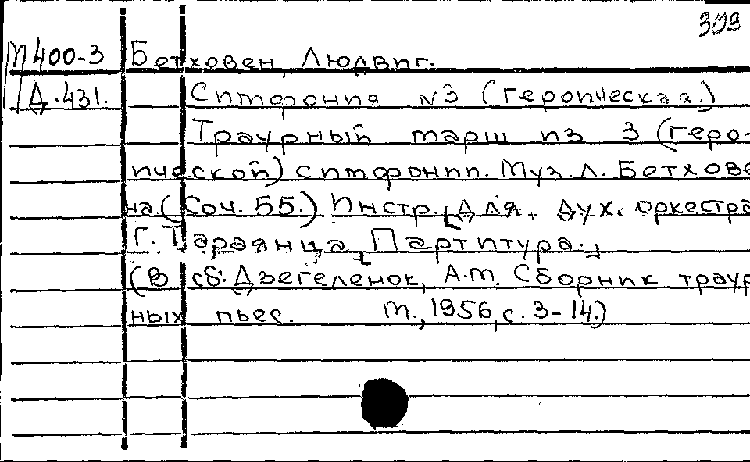 393
М400-3 Бетховен, Людвиг.
Д.431. Симфония №3 (героическая.)
Траурный марш из 3 (геро-
ической) симфонии. Муз. Л. Бетхове
на. (Соч. 55.) Инстр. [для. дух. оркестра
Г. Тараянца. Партитура.]
(В сб: Дзегеленок, А.М. Сборник траур
ных пьес. М., 1956, с. 3-14.)